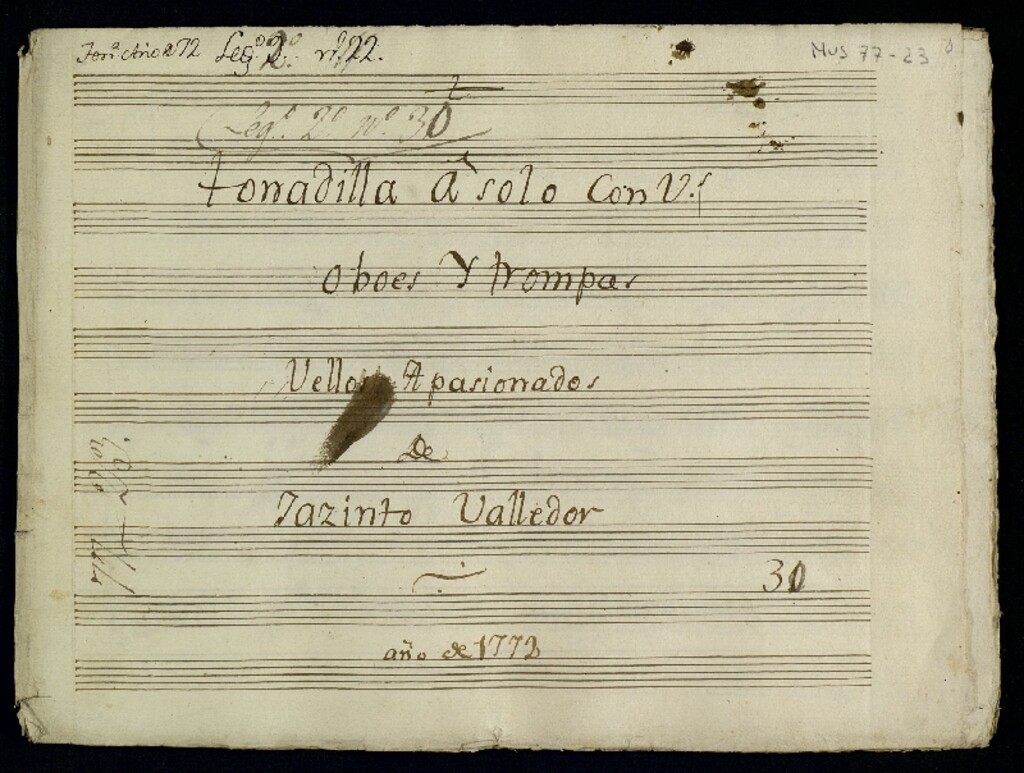 Año 72 Leg.º 2.º n.º 22.
Mus 77-23
Leg.º 2.º n.º 30
tonadilla â solo Con V.s
Oboes Y trompas
Vellos Apasionados
De
Jazinto Valledor
30
año de 1772